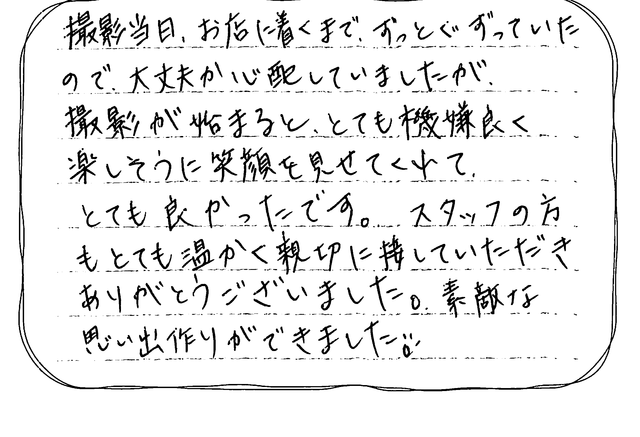 撮影当日、お店に着くまで、ずっとぐずっていた
ので、大丈夫か心配していましたが、
撮影が始まると、とても機嫌良く
楽しそうに笑顔を見せてくれて、
とても良かったです。スタッフの方
もとても温かく親切に接していただき
ありがとうございました。素敵な
思い出作りができました。